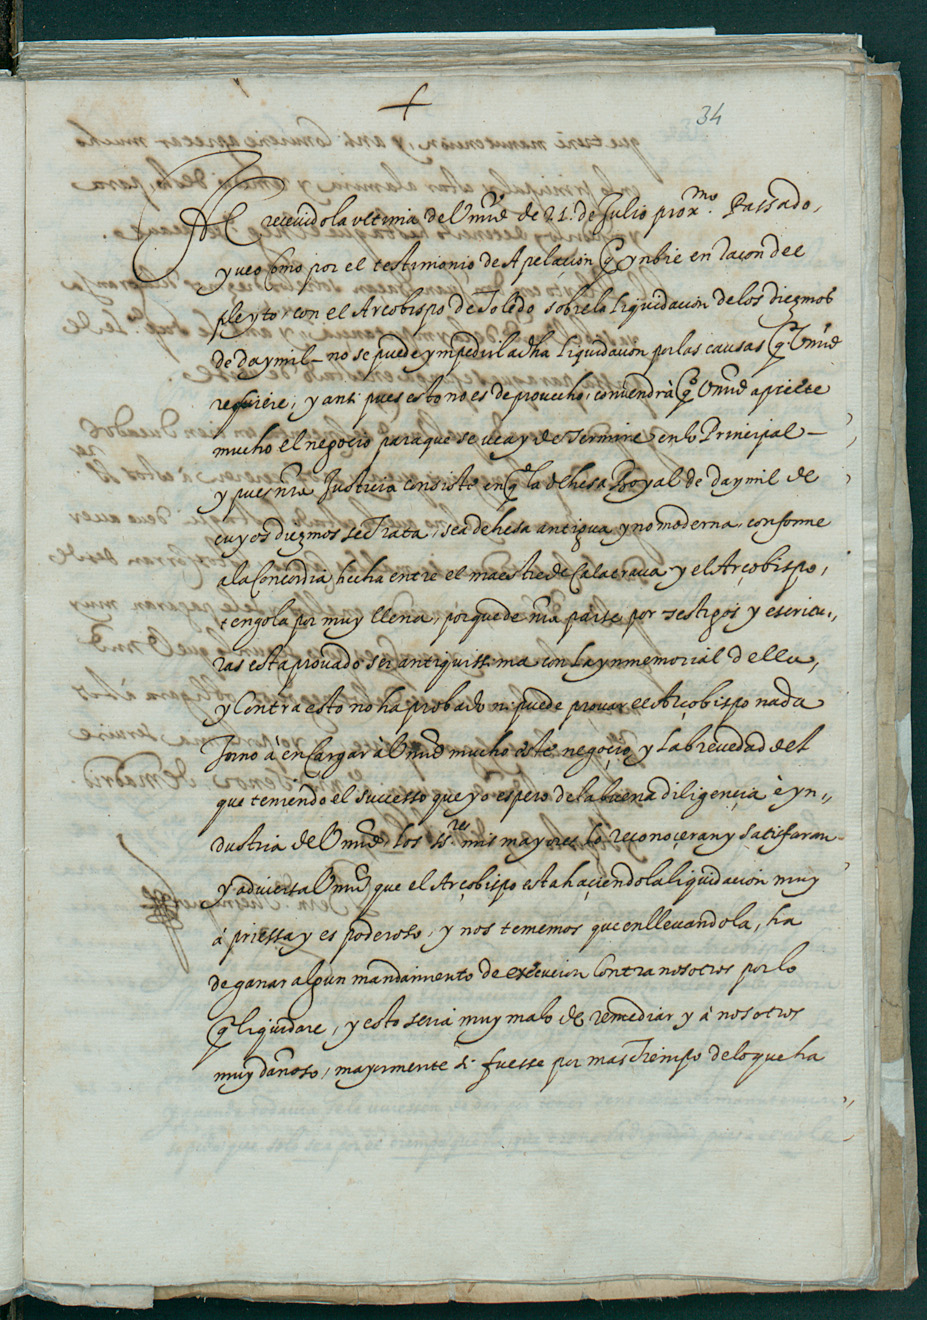 34
He recevido la ultima de Vmd de 21. de Julio prox.mo Passado,
y veo como por el testimonio de Apelacion q̃ ynbie en raçon del
pleyto con el Arcobispo de Toledo sobre la liquidacion de los diezmos
de daymil – no se puede ympedir la dha liquidacion por las causas q̃ Vmd
refiere, y ansi pues esto no es de provecho, convendrà q̃ Vmd apriete
mucho el negocio para que se vea y determine en lo Principal –
y pues nr̃a Justicia consiste en q̃ la dehesa Royal de daymil de
cuyos diezmos se Trata, sea dehesa antigua y no moderna, conforme
a la Concordia hecha entre el maestre de Calatrava y el Arçobispo,
tengola por muy llena, porque de nr̃a parte por testigos y escritu,,
ras esta provado ser antiquissima con la ynmemorial della,
y Contra esto no ha probado ni puede provar el Arçobispo nada
Torno á en Cargar à Vmd mucho este negoçio y la brevedad del
que teniendo el sucesso que yo espero de la buena diligençia è yn,,
dustria de Vmd, los ss.res mis mayores lo reconoçeran y satisfaran
y advierta Vmd que el Arçobispo esta haçiendo la liquidacion muy
á priessa y es poderoso, y nos tememos que en llevandola, ha
de ganar algun mandamiento de execucion Contra nosotros por lo
q̃ liquidare, y esto seria muy malo de remediar y à nosotros
muy dañoso, mayormente si fuesse por mas Tiempo de lo que ha